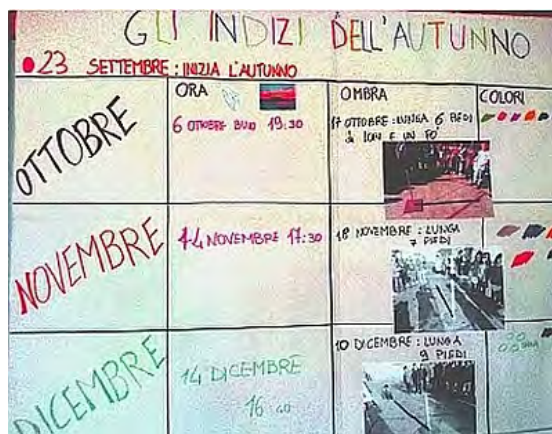 GLI INDIZI DELL'AUTUNNO
23 SETTEMBRE : INIZIA L'AUTUNNO
ORA
OMBRA
COLORI
OTTOBRE
6 OTTOBRE BUIO 19:30
17 OTTOBRE : LUNGA 6 PIEDI
E UN PO'
NOVEMBRE
NOVEMBRE 17:30
18 NOVEMBRE : LUNGA
7 PIEDI
DICEMBRE
14 DICEMBRE
16
10 DICEMBRE : LUNGA
9 PIEDI